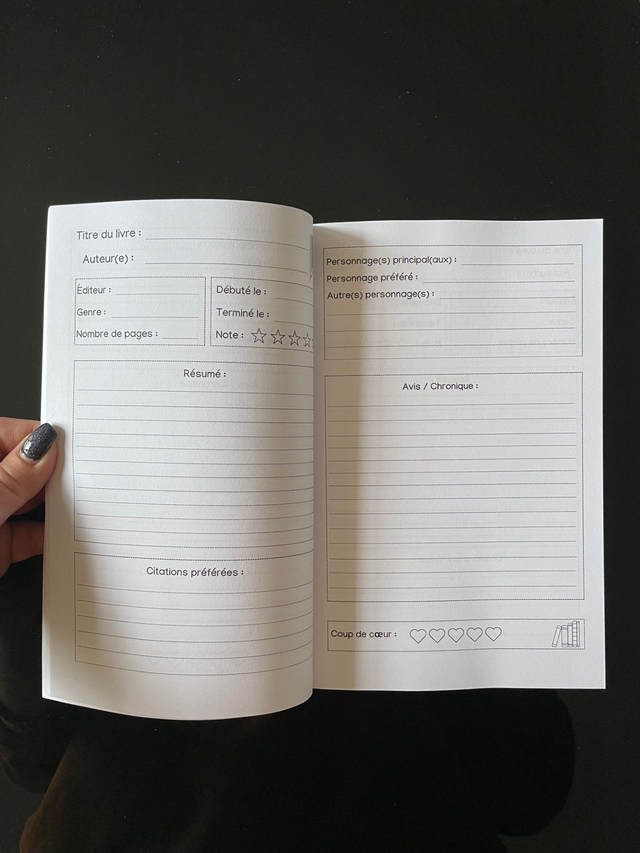 Titre du livre :
Auteur(e) :
Éditeur :
Genre :
Nombre de pages :
Débuté le :
Terminé le :
Note :
Résumé :
Citations préférées :
Personnage(s) principal(aux) :
Personnage préféré :
Autre(s) personnage(s) :
Avis / Chronique :
Coup de cœur :